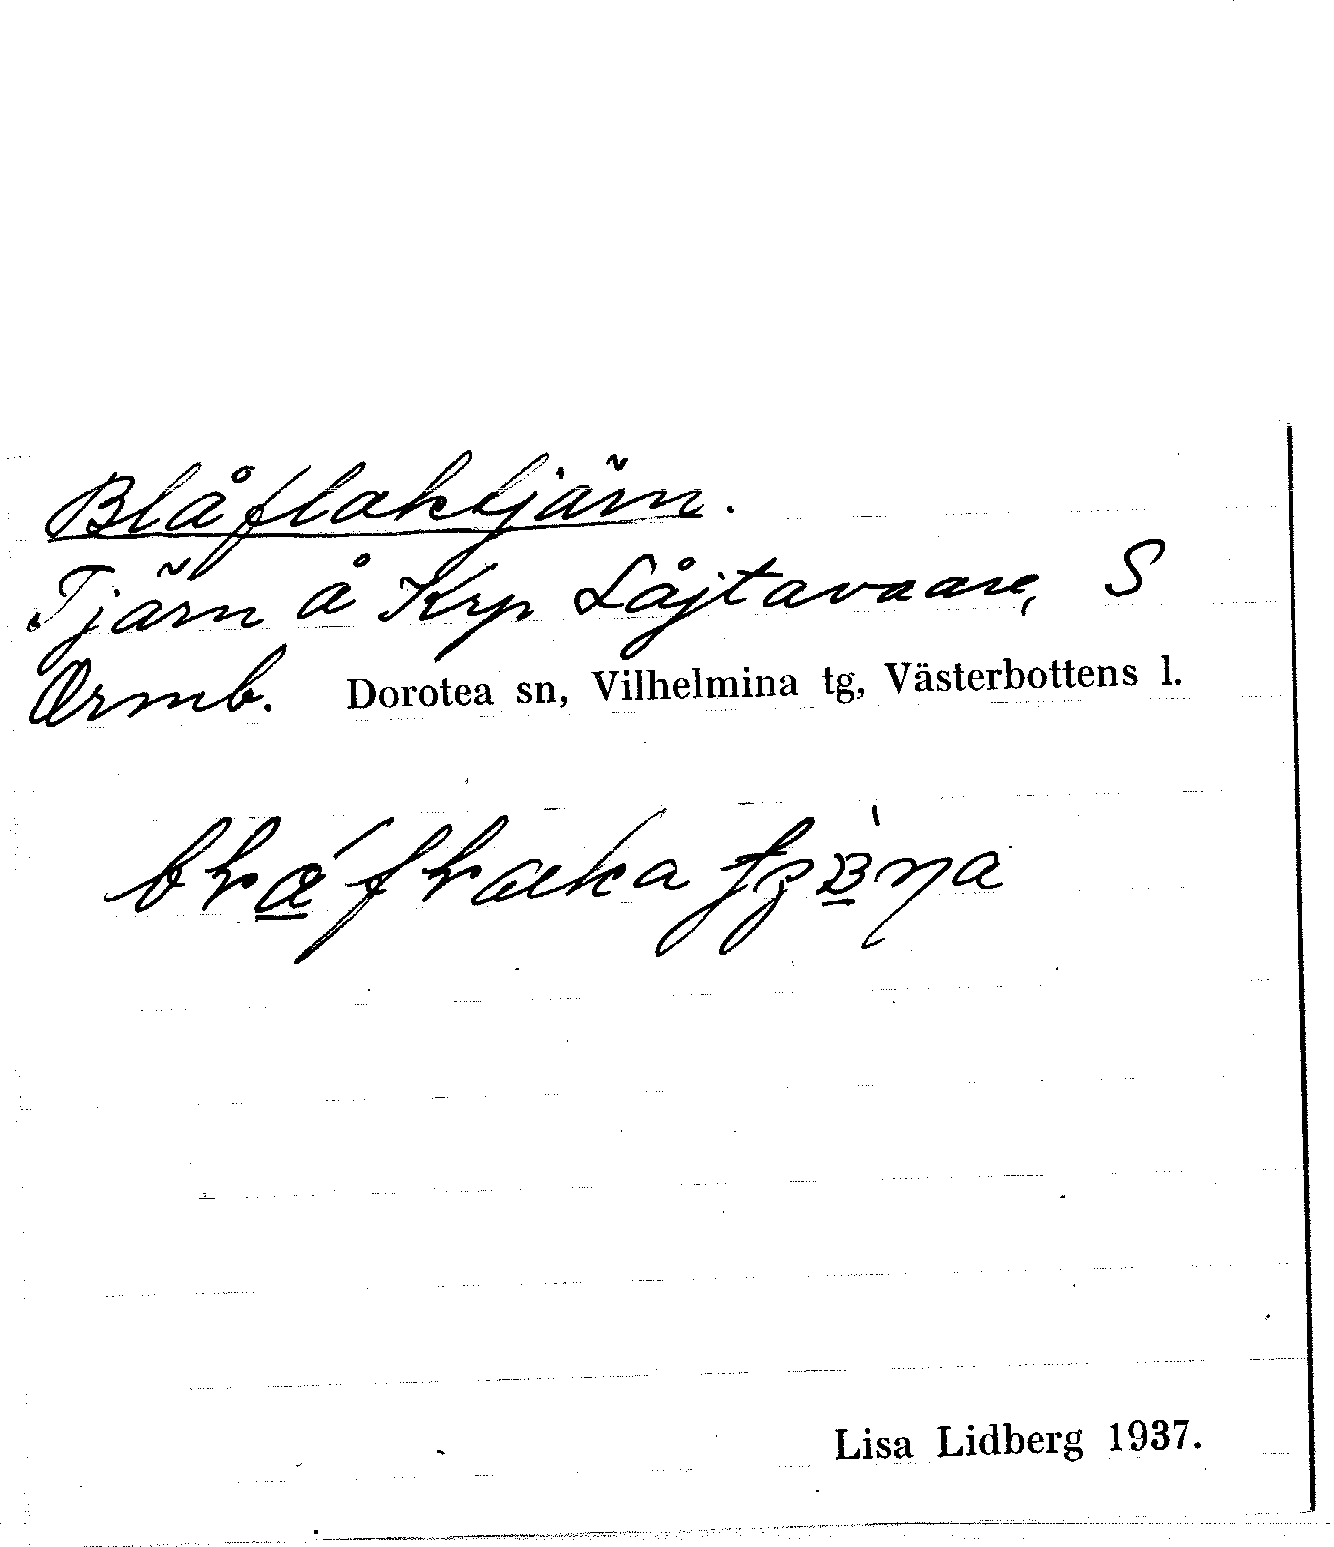 Blåflaktjärn.
Tjärn å Krp Låjtavaare, S
Ormb. Dorotea sn, Vilhelmina tg, Västerbottens l.
Lisa Lidberg 1937.